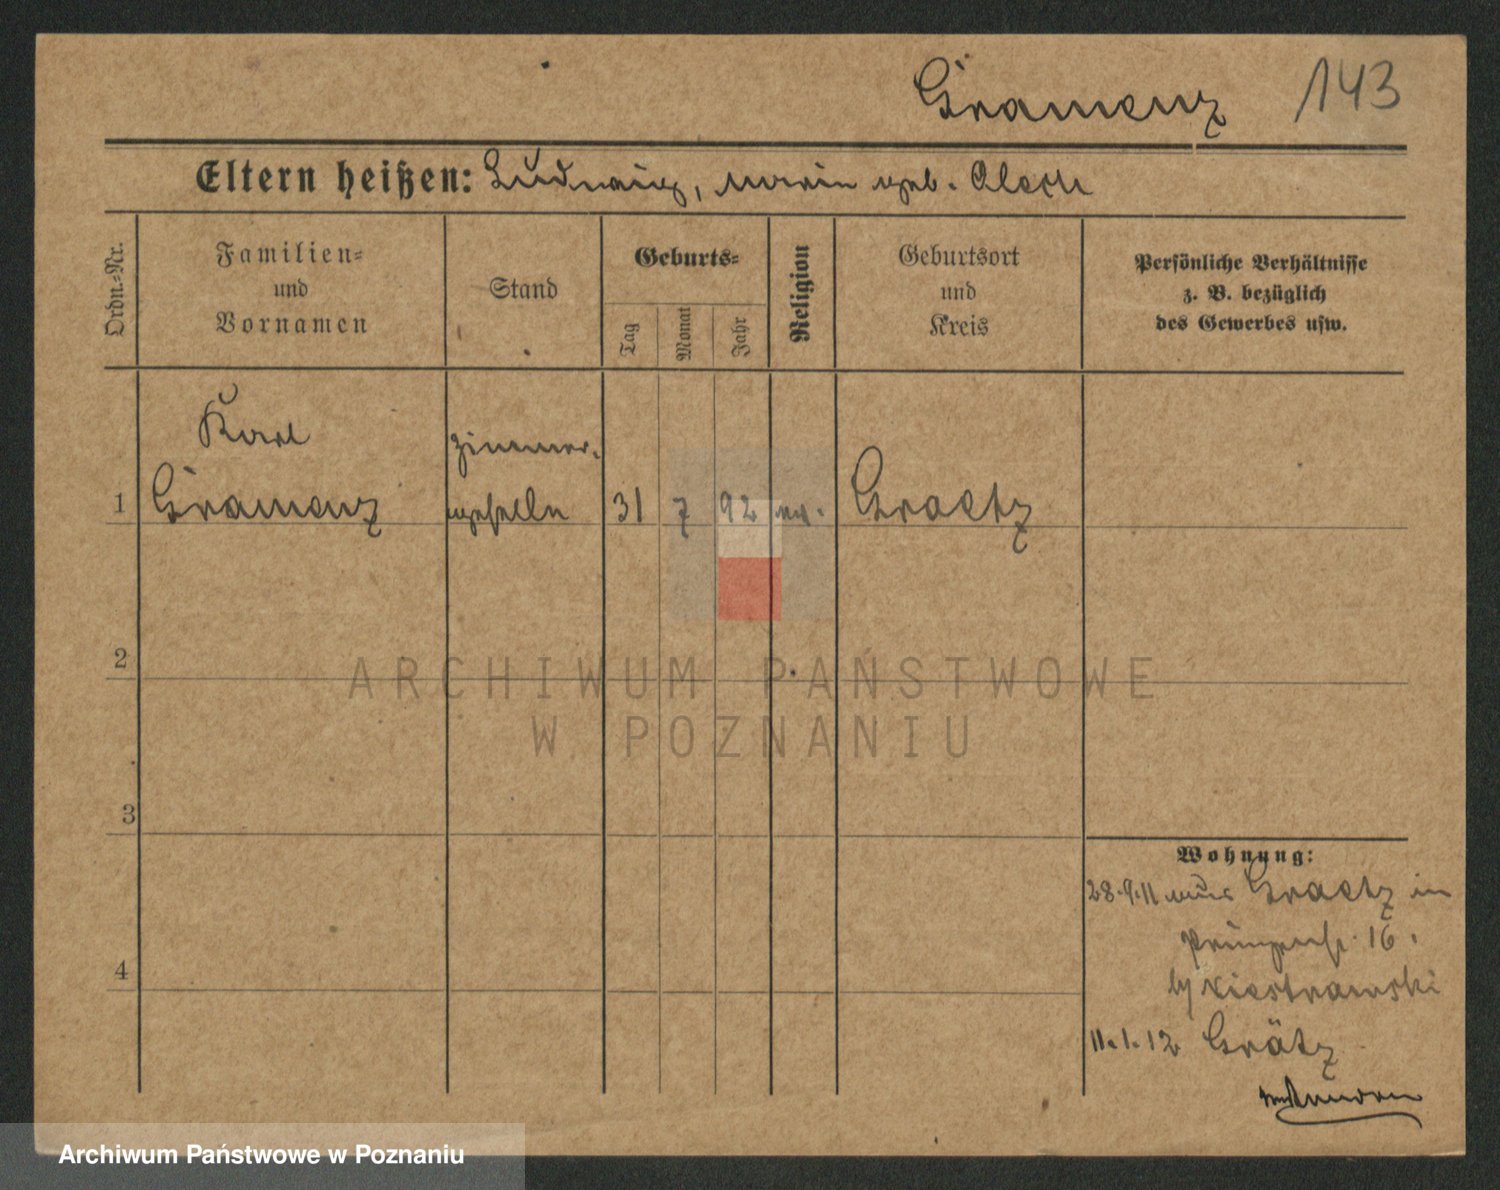 Gramenz 143
Eltern heißen: Ludwig, Marie geb. Alech
Ordn.-Nr.
Familien-
und
Vornamen
Stand
Geburts-
Tag
Monat
Jahr
Religion
Geburtsort
und
Kreis
Persönliche Verhältnisse
z. B. bezüglich
des Gewerbes usw.
Karl
Zimmer-
1 Gramenz geselle 31 7 92 ev. Graetz
2
3
4
Wohnung:
28.9.11 aus Graetz in
16.
by
11.1.12 Grätz
ARCHIWUM PAŃSTWOWE
W POZNANIU
Archiwum Państwowe w Poznaniu